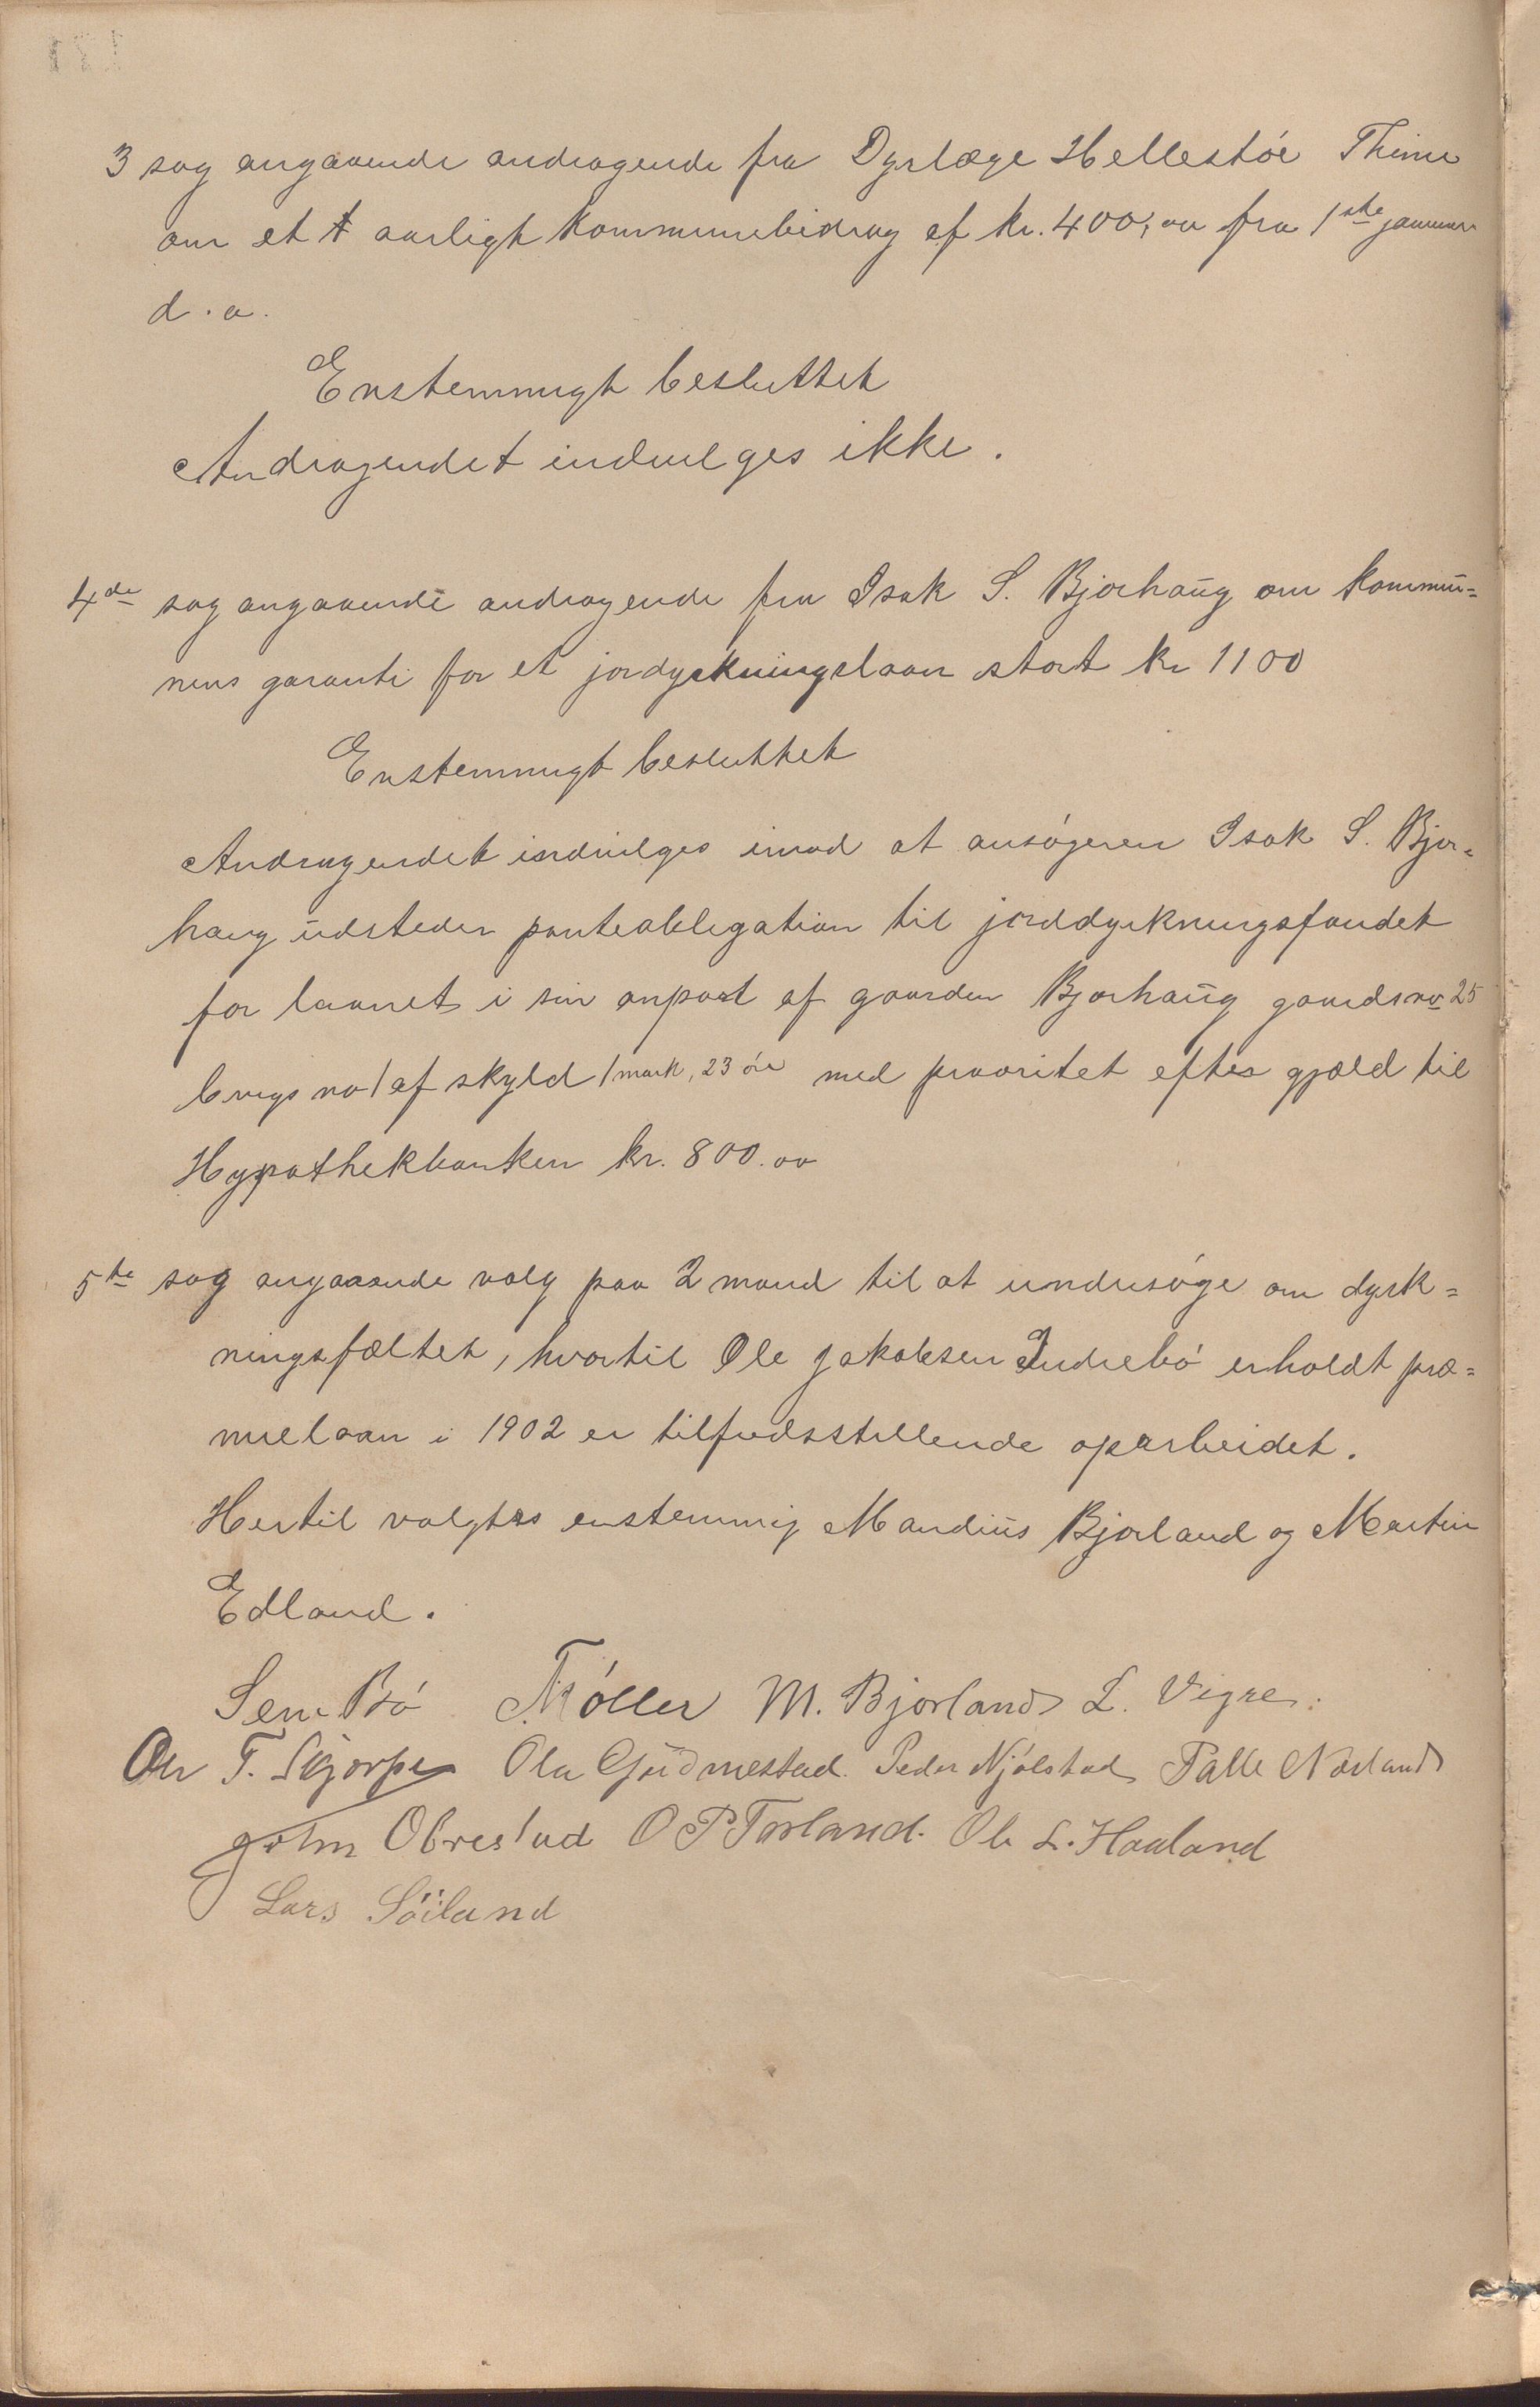 3 sag angaaende andragende fra Dyrlæge Hellestöe Thime
om et aarligt kommunebidrag af kr. 400,00 fra 1ste januar
d.a.
Enstemmigt besluttet
Andragendet indvilges ikke.
4de sag angaaende andragende fra Isak S. Bjorhaug om kommu=
nens garanti for et jordyrkningslaan stort kr 1100
Enstemmigt besluttet
Andragendet indvilges imod at ansøgeren Isak S. Bjor=
haug udsteder panteobligation til jorddyrkningsfondet
for laanet i sin anpart af gaarden Bjorhaug gaardsno 25
brugs no 1 af skyld 1 mark, 23 öre med prioritet efter gjæld til
Hypothekbanken kr. 800.00
5te sag angaaende valg paa 2 mand til at undersöge om dyrk=
ningsfæltet, hvortil Ole Jakobsen Indrebö erholdt præ=
mielaan i 1902 er tilfredsstillende oparbeidet.
Hertil valgtes enstemmig Mandius Bjorland og Martin
Edland.
Sem Bö Møller M. Bjorland L. Vigre.
Ole T. Skjorpe Ola Gudmestad. Peder Njölstad Palle Nærland
John Obrestad O P Torland. Ole L. Haaland
Lars Söiland